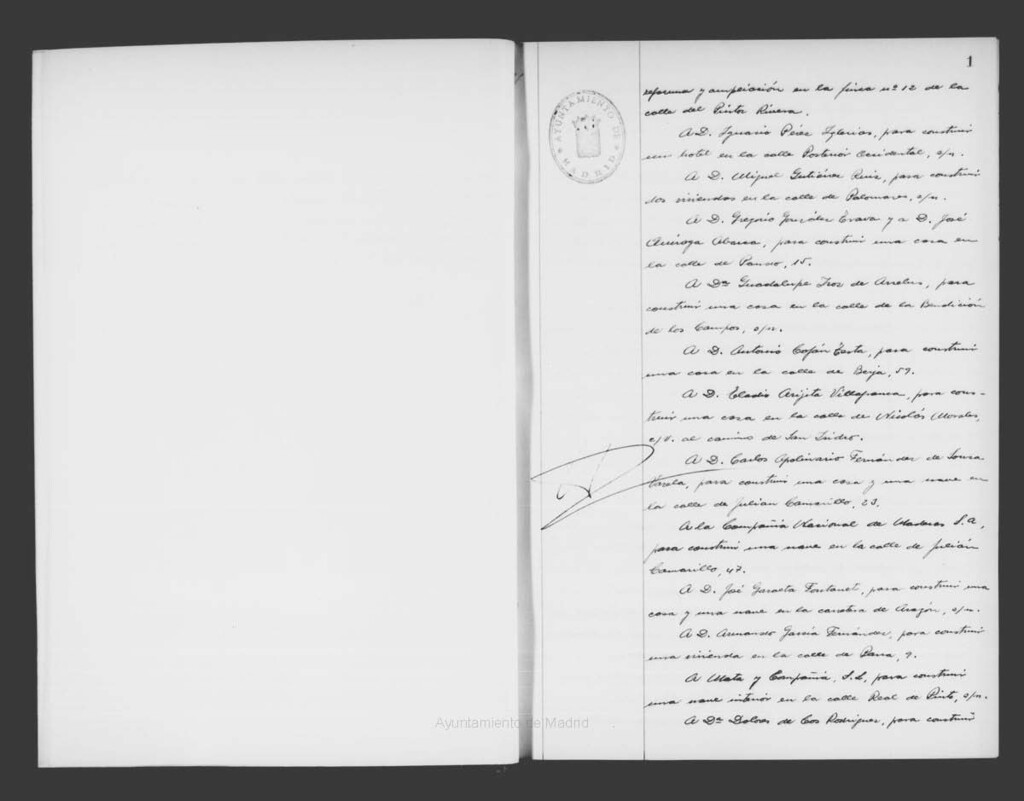 1
AYUNTAMIENTO DE MADRID
reforma y ampliación en la finca nº 12 de la
calle del Pintor Rivera.
A D. Ignacio Pérez Iglesias, para construir
un hotel en la calle Posterior Occidental, s/n.
A D. Miguel Gutiérrez Ruiz, para construir
dos viviendas en la calle de Palomares, s/n.
A D. Gregorio González y a D. José
Quiroga Abarca, para construir una casa en
la calle de 15.
A Dª Guadalupe de para
construir una casa en la calle de la Bendición
de los Campos, s/n.
A D. Antonio para construir
una casa en la calle de Berja, 59.
A D. Eladio Arijita Villapanca, para cons-
truir una casa en la calle de Nicolás Morales,
c/v. al camino de San Isidro.
A D. Carlos Apolinario Fernández de Sousa
Varela, para construir una casa y una nave en
la calle de Julian Camarillo, 23.
A la Compañia Nacional de Maderas S.A,
para construir una nave en la calle de Julián
Camarillo, 47.
A D. José Fontanet, para construir una
casa y una nave en la carretera de Aragón, s/n.
A D. Armando García Fernández, para construir
una vivienda en la calle de Parra, 9.
A Mata y Compañia, S.L, para construir
una nave interior en la calle Real de Pinto, s/n.
A Dª Dolores de Cos Rodríguez, para construir
Ayuntamiento de Madrid